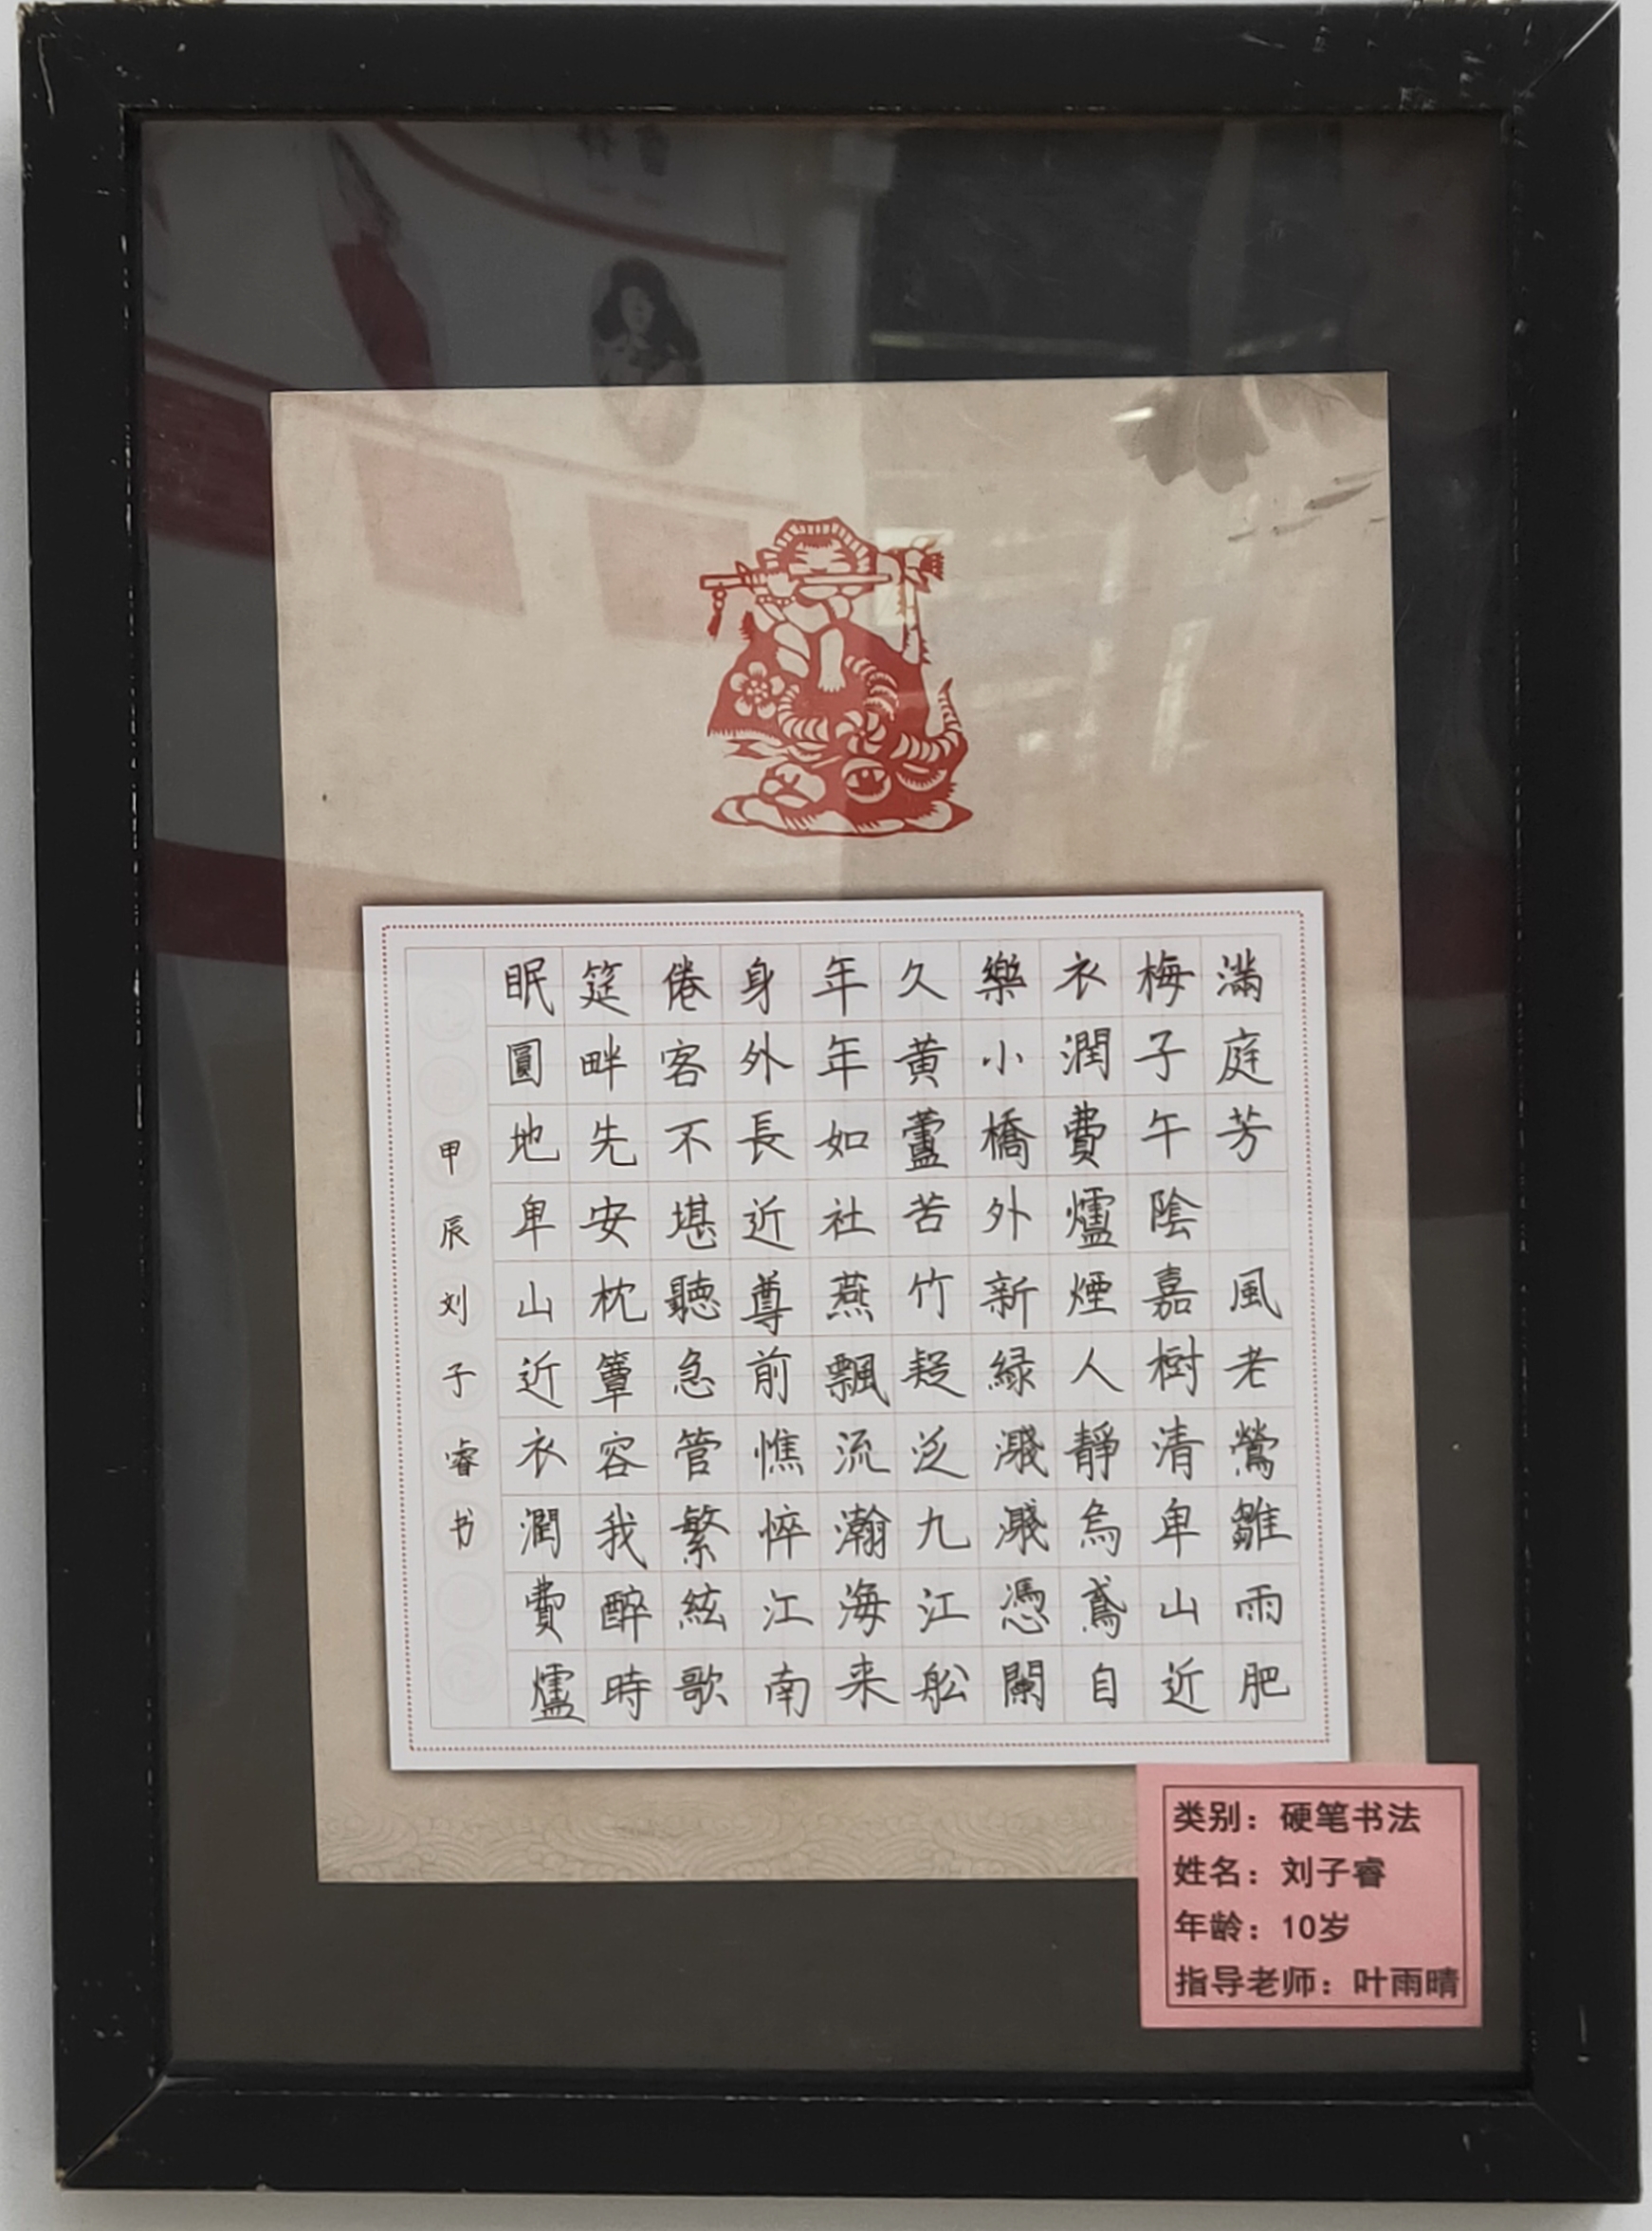 滿庭芳 風老鶯雛雨肥
梅子午陰嘉樹清卑山近
衣潤費爐煙人靜烏鳶自
樂小橋外新緑濺濺憑闌
久黄蘆苦竹疑泛九江舩
年年如社燕飄流瀚海来
身外長近尊前憔悴江南
倦客不堪聽急管繁絃歌
筵畔先安枕簟容我醉時
眠圓地卑山近衣潤費爐
甲辰刘子睿书
类别：硬笔书法
姓名：刘子睿
年龄：10岁
指导老师：叶雨晴